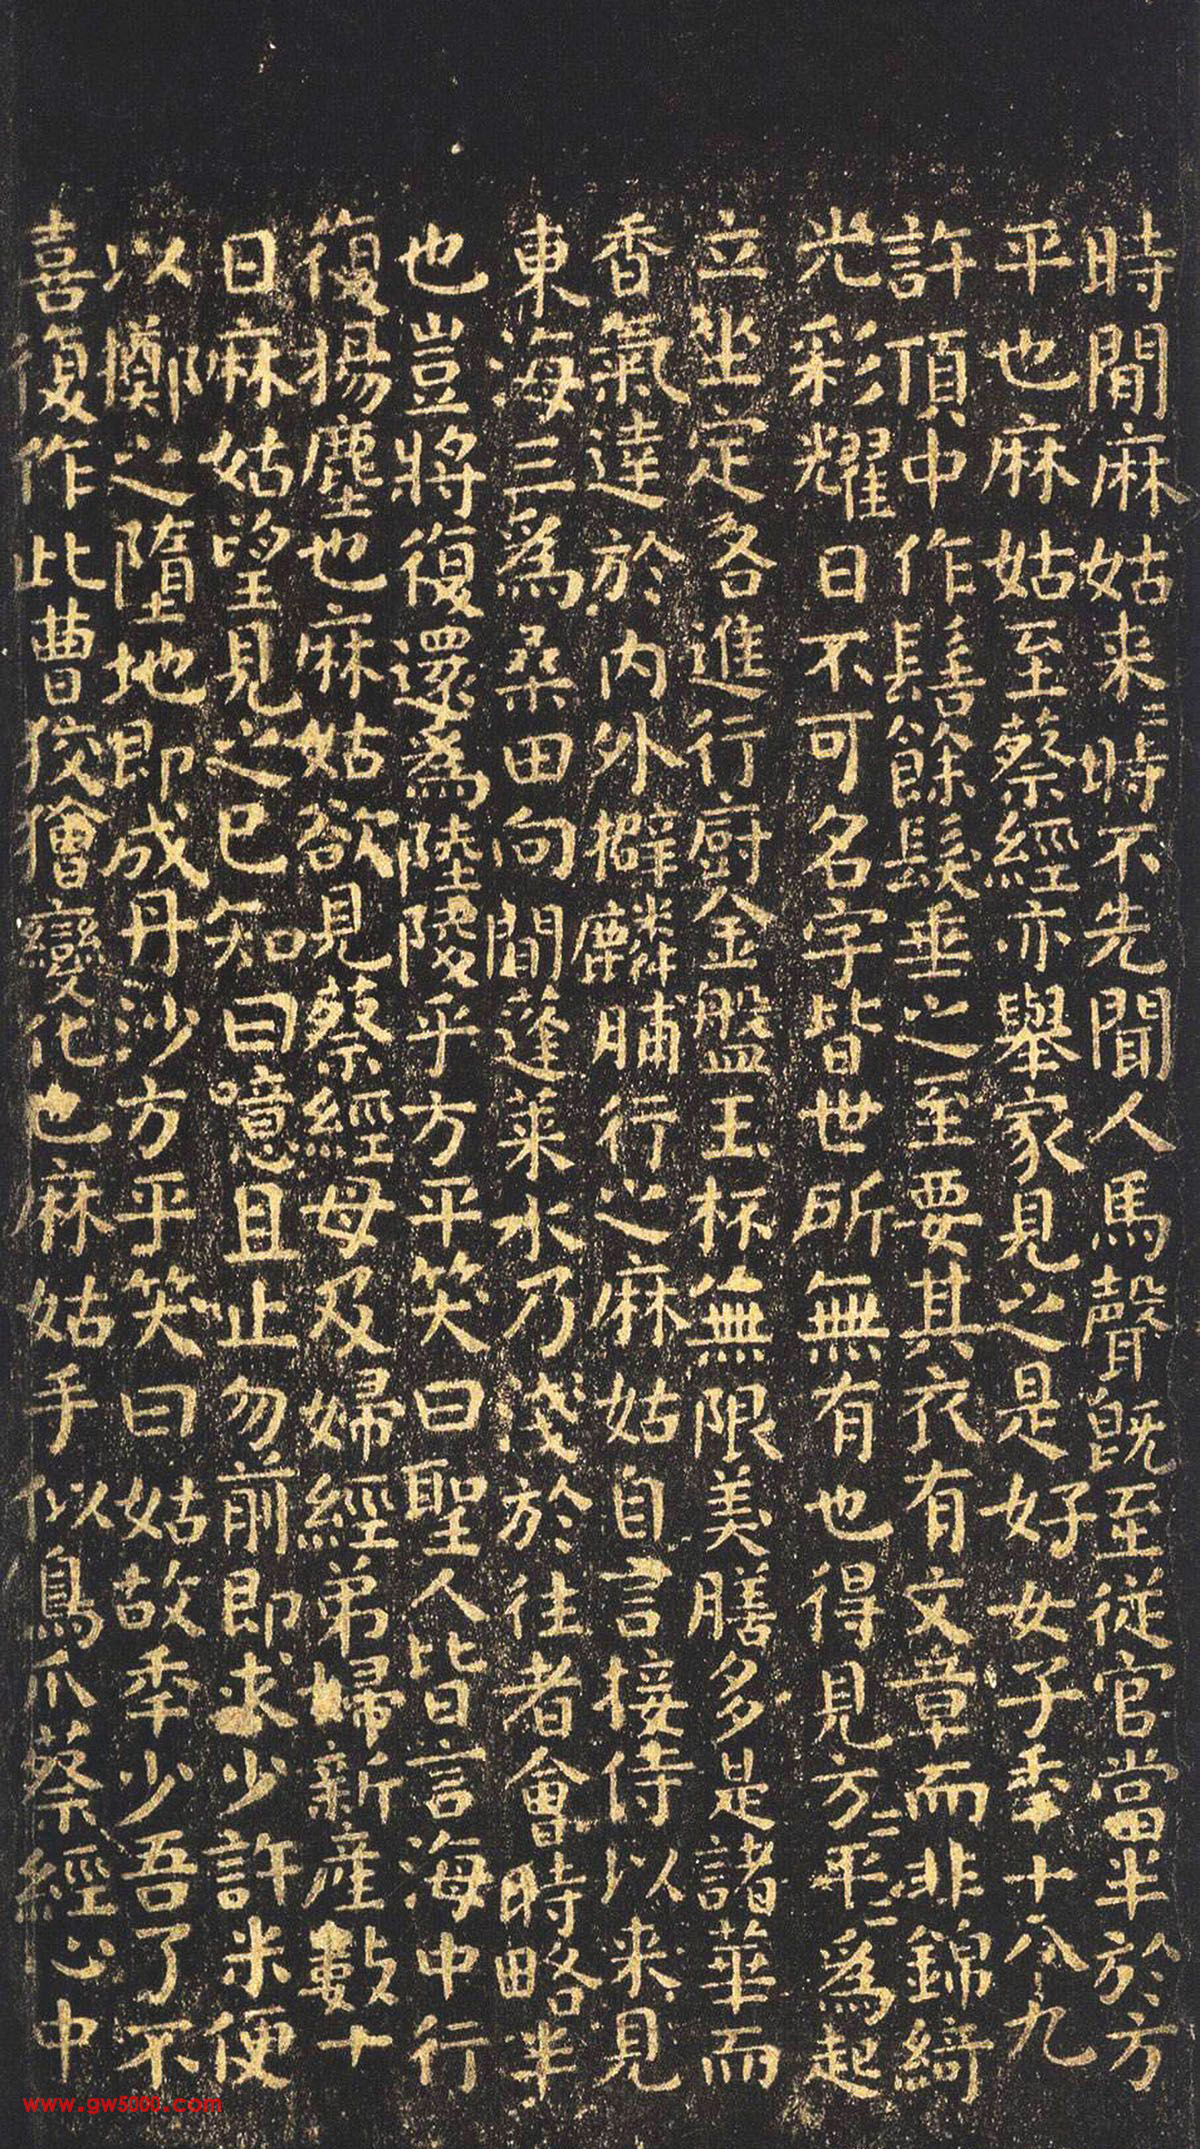 時間麻姑来〻時不先聞人馬聲既至從官當半於方
平也麻姑至蔡經亦舉家見之是好女子年十八九
許頂中作髻餘髮垂之至要其衣有文章而非錦綺
光彩耀日不可名字皆世所無有也得見方〻平〻爲起
立坐定各進行廚金盤玉杯無限美膳多是諸華而
香氣達於內外擗麟脯行之麻姑自言接侍以来見
東海三爲桑田向間蓬萊水乃淺於往者會時略半
也豈將復還爲陸陵乎方平笑曰聖人皆言海中行
復揚塵也麻姑欲見蔡經母及婦經弟婦新產數十
日麻姑望見之已知曰噫且止勿前即求少許米便
以擲之墮地即成丹沙方平笑曰姑故年少吾了不
喜復作此曹狡獪變化也麻姑手似鳥爪蔡經心中
www.gw5000.com